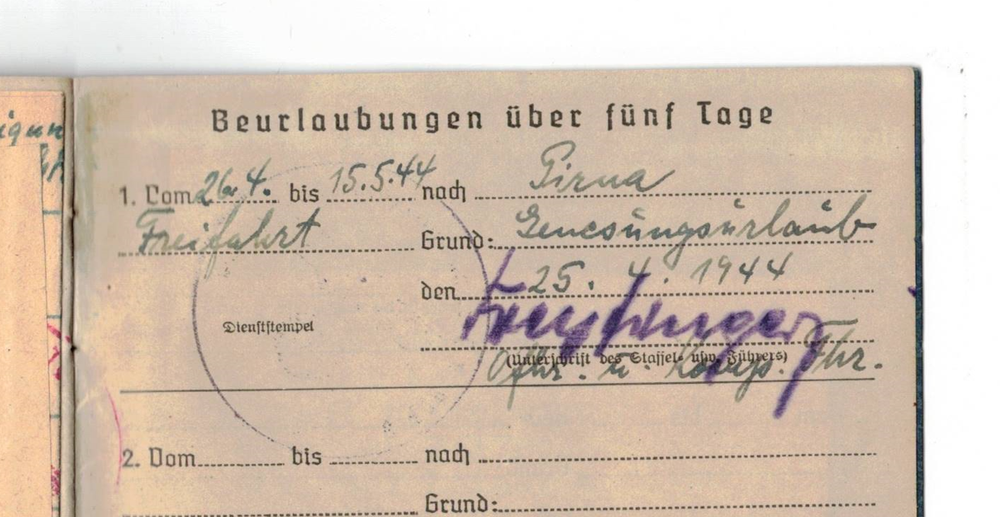 igun
Beurlaubungen über fünf Tage
1. Vom 26.4. bis 15.5.44 nach Pirna
Freifahrt Grund: Genesungsurlaub
den 25. 4. 1944
Dienststempel
(Unterschrift des Staffel- usw. Führers)
u. Fhr.
2. Vom bis nach
Grund: